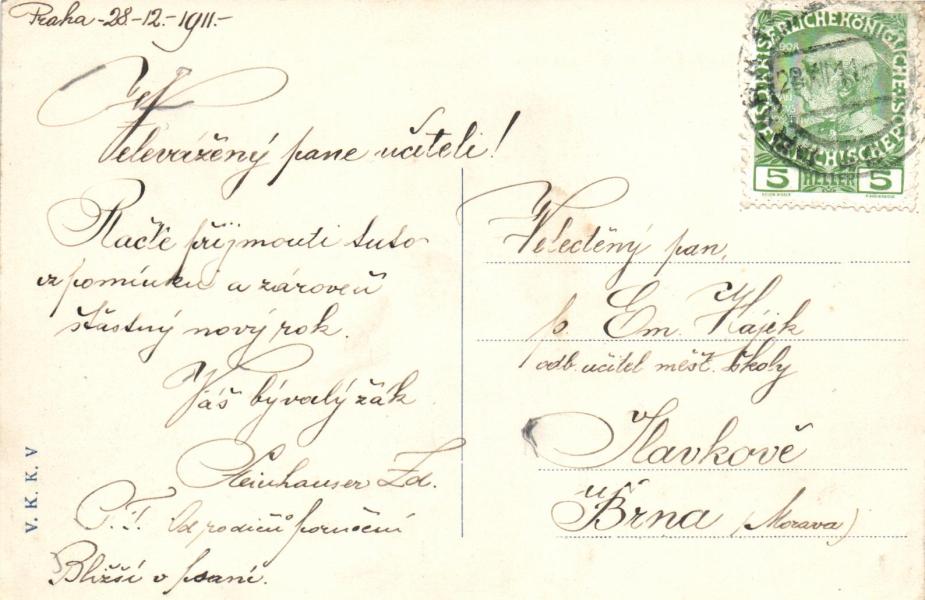 Praha - 28.-12.- 1911.-
Velevážený pane učiteli!
Račte přijmouti tuto
vzpomínku a zároveň
šťastný nový rok.
Váš bývalý žák
Steinhauser Zd.
P. T. Od rodičů poručení
Bližší v psaní.
V. K. K. V
KAISERLICHEKÖNIGLICHE
ÖSTERREICHISCHEPOST
5 HELLER 5
Veleděný pan,
p. Em. Hájek
odb. učitel měšť. školy
Slavkově
u Brna (Morava)